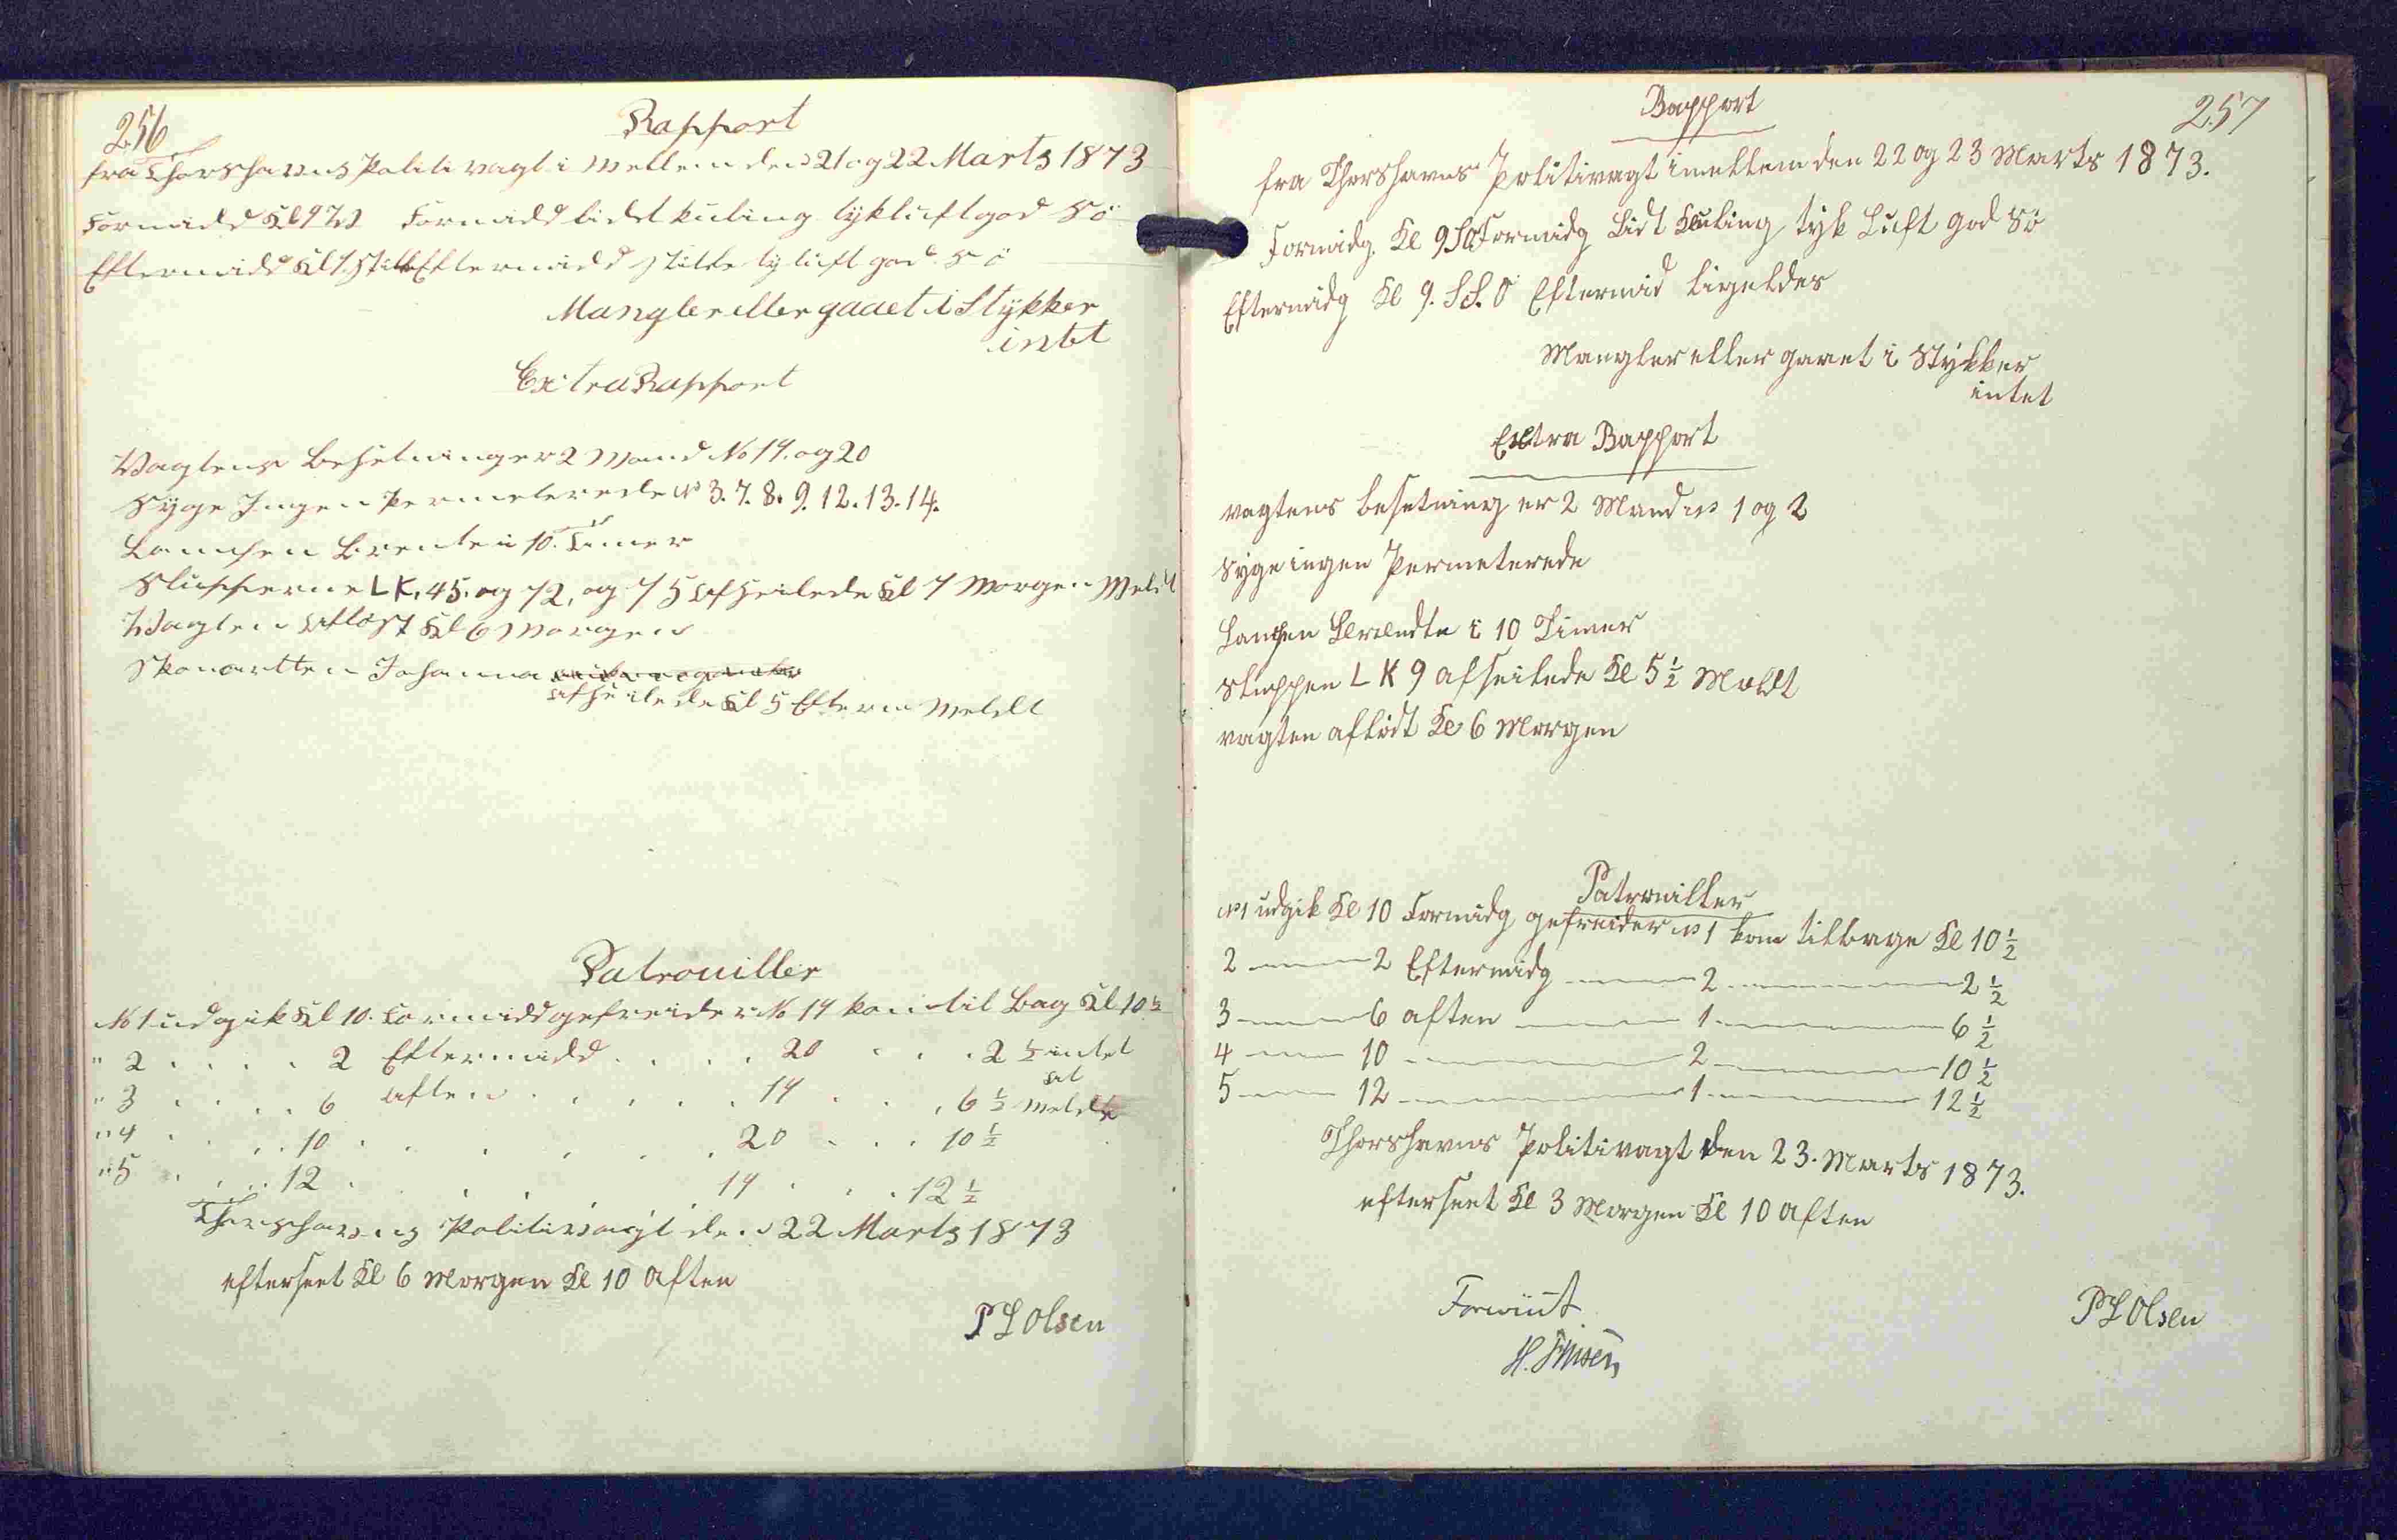 256
Rapport
fra Thorshavns Politivagt i Mellem den 21 og 22 Marts 1873
Formidd Kl 9 Formidd lidet kuling tykluft god Sö
Eftermidd Kl Stille Eftermidd stille ty luft god Sö
Mangler eller gaaet i Stykker
intet
Extra Rapport
Vagtens Besetning er 2 Mand No 19. og 20
Syge Ingen Permeterede No 3. 7. 8. 9. 12. 13. 14.
Lampen Brente i 10. Timer
Slupperne LK, 45. og 72, og 75 afseilede Kl 7 Morgen Meldt
Vagten aflöst Kl 6 Morgen
Skonnerten Johanna
afseilede Kl 5 Efterm Meldt
Patrouiller
No 1 udgik Kl 10. Formidd gefreider No 19 kom til Bag Kl 10 ½
" 2 . . . . 2 Eftermidd . . . . 20 . . . 2 ½ intet
at
" 3 . . . . 6 aften . . . . . 19 . . . 6 ½ melde
" 4 . . . 10 . . . . . . 20 . . . 10 ½
" 5 . . . . 12 . . . . . 19 . . . 12 ½
Thorshavns Politivagt den 22 Marts 1873
efterseet Kl 6 Morgen Kl 10 Aften
P L Olsen
257
Rapport
fra Thorshavns Politivagt imellem den 22 og 23 Marts 1873.
Formidg. Kl 9 SO Formidg Lidt Kuling tyk Luft god Sö
Eftermidg Kl 9. S S. O Eftermid ligeldes
Mangler eller gaaet i Stykker
intet
Extra Rapport
vagtens besetning er 2 Mand No 1 og 2
Syge ingen Permeterede
Lampen Brendte i 10 Timer
Sluppen L K 9 afseilede Kl 5 ½ Mældt
vagten aflöst Kl 6 Morgen
Patrouiller
No 1 udgik Kl 10 Formidg gefreider No 1 kom tilbage Kl 10 ½
2 — 2 Eftermidg — 2 — 2 ½
3 — 6 aften — 1 — 6 ½
4 — 10 — 2 — 10 ½
5 — 12 — 1 — 12 ½
Thorshavns Politivagt den 23. Marts 1873.
efterseet Kl 3 Morgen Kl 10 Aften
Forviist
P L Olsen